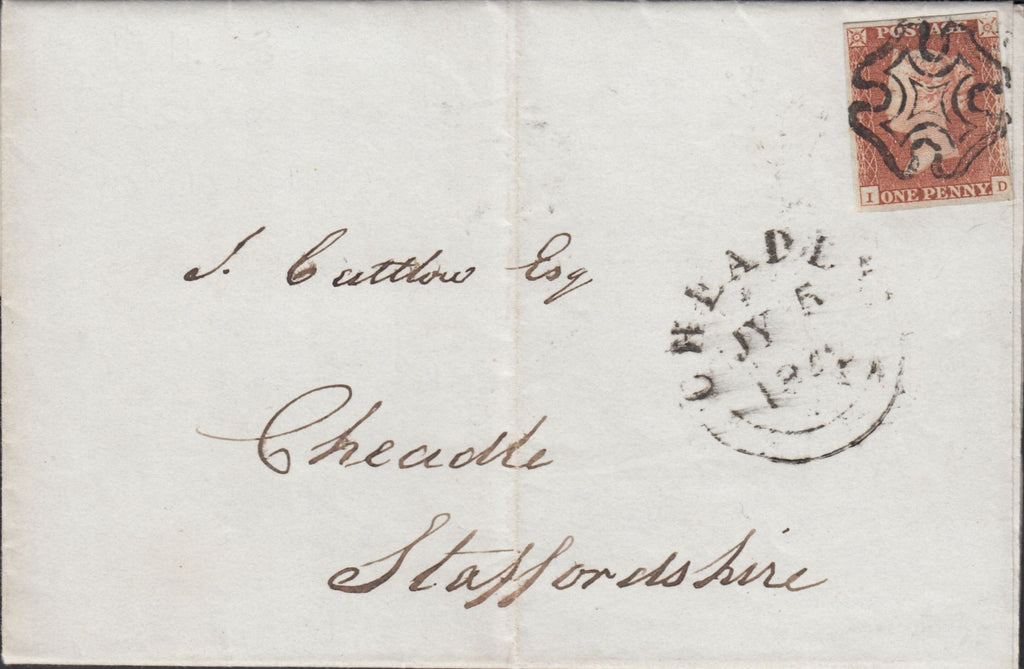 POSTAGE
I ONE PENNY. D
CHEADLE
JY 5
J. Cattlow Esq
Cheadle
Staffordshire